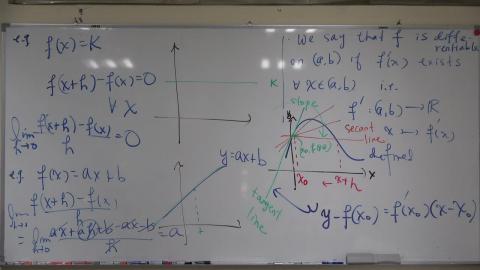 e.g f(x)=K
f(x+h)-f(x)=0
∀ x
lim h→0 f(x+h)-f(x) / h = 0
K
e.g. f(x)=ax+b
lim h→0 f(x+h)-f(x) / h
= lim h→0 ax+ah+b-ax-b / h = a
y=ax+b
We say that f is differentiable
on (a,b) if f'(x) exists
∀ x∈(a,b) i.e.
f': (a,b) → ℝ
x ↦ f'(x)
slope
secant line
defined
x₀ x+h x
tangent line
y-f(x₀)=f'(x₀)(x-x₀)